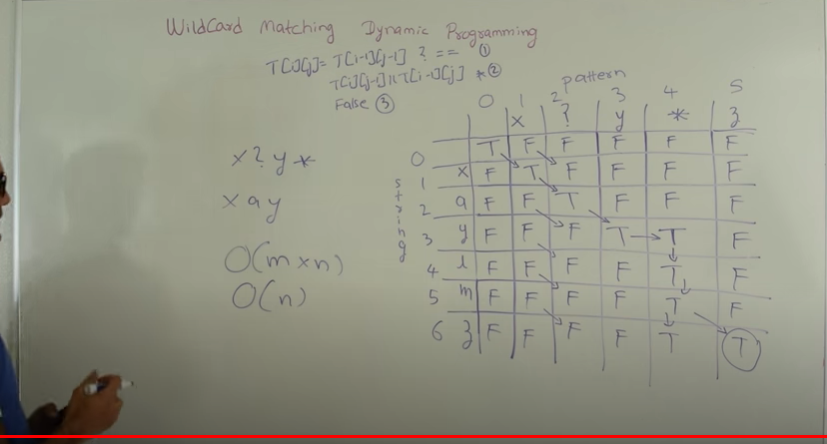 WildCard Matching Dynamic Programming
T[i][j]= T[i-1][j-1] ? == ①
T[i][j-1] || T[i-1][j] * ②
False ③
pattern
0 1 2 3 4 5
x ? y * z
0 T F F F F F
1 x F T F F F F
2 a F F T F F F
3 y F F F T T F
4 l F F F F T F
5 m F F F F T F
6 z F F F F T T
string
x?y*
xay
O(m×n)
O(n)